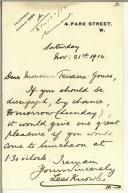 4, PARK STREET,
W.
Saturday
Nov. 21st 1914
Dear Monsieur Teixeira Gomes,
If you should be
disengaged, by chance,
tomorrow (Sunday),
it would give me great
pleasure if you would
come to luncheon at
1.30 o'clock. I remain
Yours sincerely
Lees Knowles